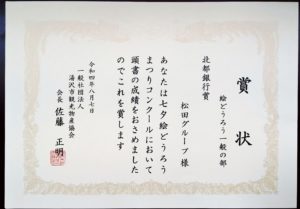 賞状
絵どうろう一般の部
北都銀行賞
松田グループ様
あなたは七夕絵どうろう
まつりコンクールにおいて
頭書の成績をおさめました
のでこれを賞します
令和四年八月七日
一般社団法人
湯沢市観光物産協会
会長 佐藤 正明